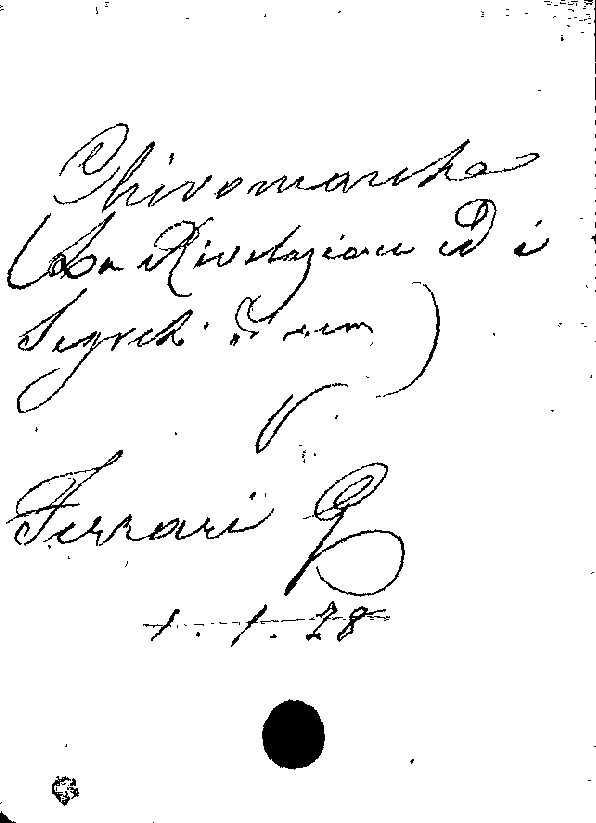 Chiromarche
(La Rivelazione ed i
Segreti
Ferrari G
1.1.28